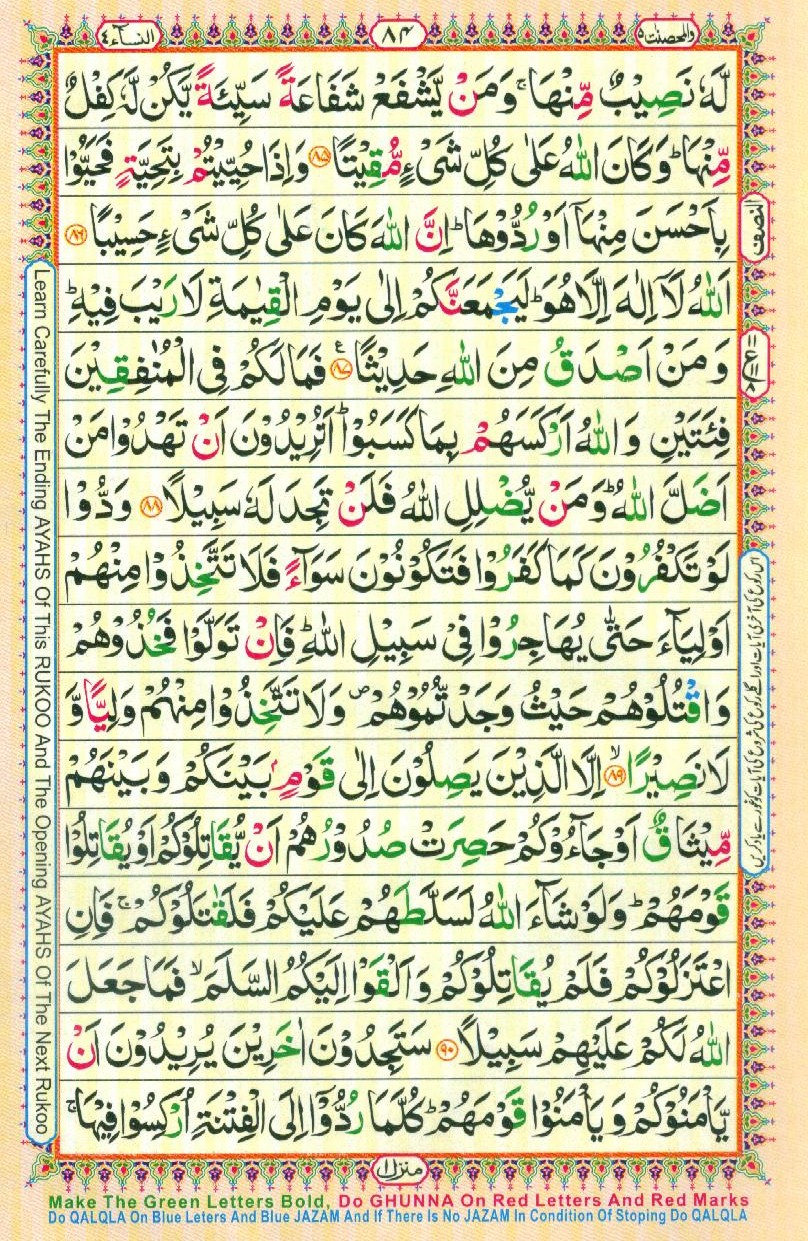 النساۤء٤
٨٤
والمحصنت٥
لَّهٗ نَصِیْبٌ مِّنْهَا ۚ وَمَنْ یَّشْفَعْ شَفَاعَةً سَیِّئَةً یَّكُنْ لَّهٗ كِفْلٌ
مِّنْهَا ؕ وَكَانَ اللّٰهُ عَلٰی كُلِّ شَیْءٍ مُّقِیْتًا ۸۵ وَاِذَا حُیِّیْتُمْ بِتَحِیَّةٍ فَحَیُّوْا
بِاَحْسَنَ مِنْهَاۤ اَوْ رُدُّوْهَا ؕ اِنَّ اللّٰهَ كَانَ عَلٰی كُلِّ شَیْءٍ حَسِیْبًا ۸۶
اَللّٰهُ لَاۤ اِلٰهَ اِلَّا هُوَ ؕ لَیَجْمَعَنَّكُمْ اِلٰی یَوْمِ الْقِیٰمَةِ لَا رَیْبَ فِیْهِ ؕ
وَمَنْ اَصْدَقُ مِنَ اللّٰهِ حَدِیْثًا ۸۷ ع فَمَا لَكُمْ فِی الْمُنٰفِقِیْنَ
فِئَتَیْنِ وَاللّٰهُ اَرْكَسَهُمْ بِمَا كَسَبُوْا ؕ اَتُرِیْدُوْنَ اَنْ تَهْدُوْا مَنْ
اَضَلَّ اللّٰهُ ؕ وَمَنْ یُّضْلِلِ اللّٰهُ فَلَنْ تَجِدَ لَهٗ سَبِیْلًا ۸۸ وَدُّوْا
لَوْ تَكْفُرُوْنَ كَمَا كَفَرُوْا فَتَكُوْنُوْنَ سَوَآءً فَلَا تَتَّخِذُوْا مِنْهُمْ
اَوْلِیَآءَ حَتّٰی یُهَاجِرُوْا فِیْ سَبِیْلِ اللّٰهِ ؕ فَاِنْ تَوَلَّوْا فَخُذُوْهُمْ
وَاقْتُلُوْهُمْ حَیْثُ وَجَدْتُّمُوْهُمْ ۪ وَلَا تَتَّخِذُوْا مِنْهُمْ وَلِیًّا وَّ
لَا نَصِیْرًا ۸۹ ۙ اِلَّا الَّذِیْنَ یَصِلُوْنَ اِلٰی قَوْمٍۭ بَیْنَكُمْ وَبَیْنَهُمْ
مِّیْثَاقٌ اَوْ جَآءُوْكُمْ حَصِرَتْ صُدُوْرُهُمْ اَنْ یُّقَاتِلُوْكُمْ اَوْ یُقَاتِلُوْا
قَوْمَهُمْ ؕ وَلَوْ شَآءَ اللّٰهُ لَسَلَّطَهُمْ عَلَیْكُمْ فَلَقٰتَلُوْكُمْ ۚ فَاِنِ
اعْتَزَلُوْكُمْ فَلَمْ یُقَاتِلُوْكُمْ وَاَلْقَوْا اِلَیْكُمُ السَّلَمَ ۙ فَمَا جَعَلَ
اللّٰهُ لَكُمْ عَلَیْهِمْ سَبِیْلًا ۹۰ سَتَجِدُوْنَ اٰخَرِیْنَ یُرِیْدُوْنَ اَنْ
یَّاْمَنُوْكُمْ وَیَاْمَنُوْا قَوْمَهُمْ ؕ كُلَّمَا رُدُّوْۤا اِلَی الْفِتْنَةِ اُرْكِسُوْا فِیْهَا ۚ
النصف
اس رکوع کی آخری آیات اور اگلے رکوع کی شروع کی آیات کو غور سے یاد کریں
Learn Carefully The Ending AYAHS Of This RUKOO And The Opening AYAHS Of The Next Rukoo
منزل۱
Make The Green Letters Bold, Do GHUNNA On Red Letters And Red Marks
Do QALQLA On Blue Leters And Blue JAZAM And If There Is No JAZAM In Condition Of Stoping Do QALQLA